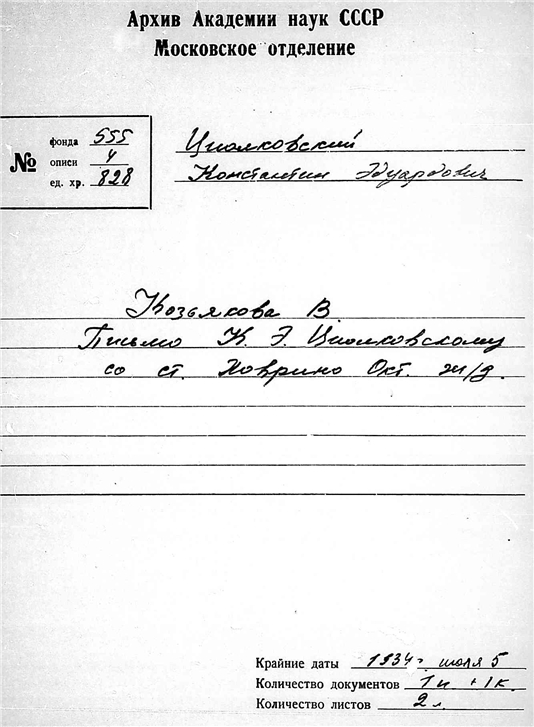 Архив Академии наук СССР
Московское отделение
№
фонда 555
описи 4
ед. хр. 828
Циолковский
Константин Эдуардович
Козьякова В.
Письмо К. Э. Циолковскому
со ст. Ховрино Окт. ж/д.
Крайние даты 1934 г. июля 5
Количество документов 1 п. + 1 к.
Количество листов 2 л.